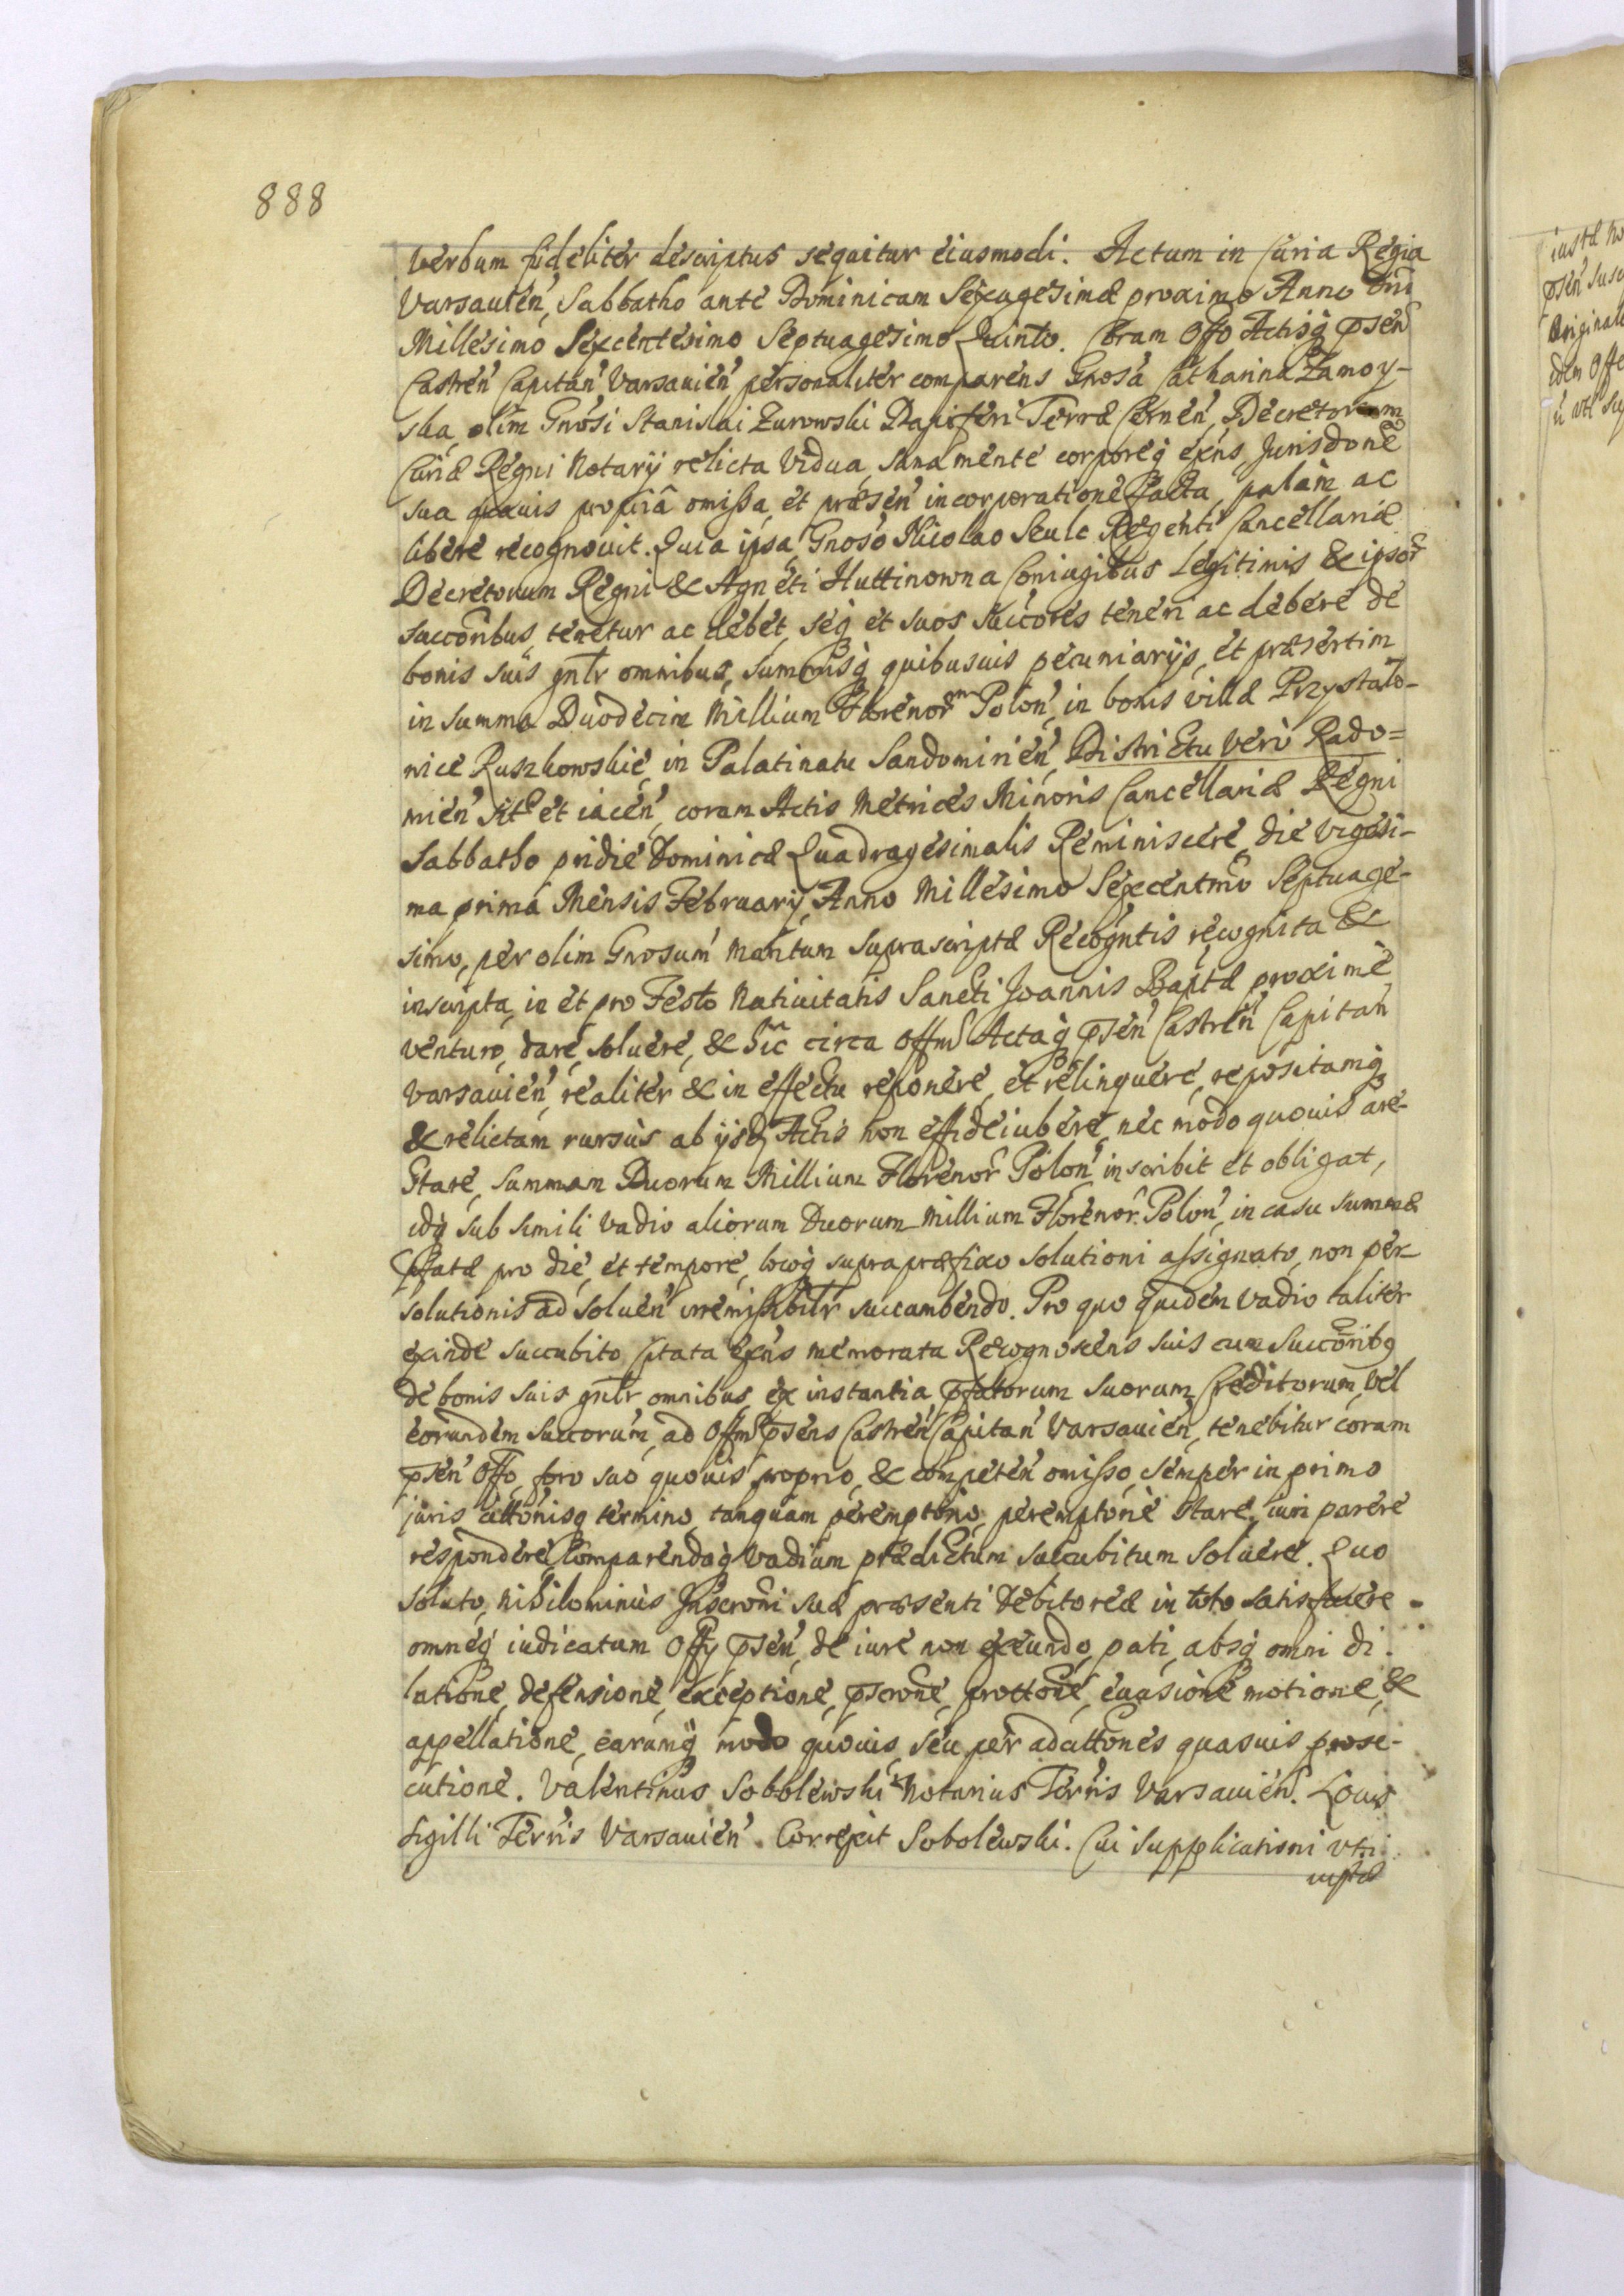 888
verbum fideliter descriptus sequitur eiusmodi. Actum in Curia Regia
Varsauien, Sabbatho ante Dominicam Sexagesimæ proximo Anno Dni
Millesimo Sexcentesimo Septuagesimo Quinto. Coram Offo Actisq psen
Castren Capitan Varsauien personaliter comparens Gnosa Catharina Zamoy-
ska, olim Gnosi Stanislai Zurowski Dapiferi Terræ Cernen, Decretorum
Curiæ Regni Notarij relicta Vidua, sana mente corporeq exns, Jurisdone
sua quauis propria omissa, et præsen incorporatione facta, palam ac
libere recognouit. Quia ipsa Gnoso Nicolao Seulc Regenti Cancellariæ
Decretorum Regni & Agneti Huttinowna Coniugibus Legitimis & ipsor
succoribus, tenetur ac debet, seq et suos succores teneri ac debere de
bonis suis gnlr omnibus, summisq quibusuis pecuniarijs, et præsertim
in summa Duodecim Millium Florenorm Polon, in bonis villæ Przystało-
wice Ruszkowskie, in Palatinatu Sandomirien, Districtu vero Rado=
mien sit et iacen, coram Actis Metrices Minoris Cancellariæ Regni
Sabbatho pridie Dominicæ Quadragesimalis Reminiscere, die vigesi-
ma prima Mensis Februarij, Anno Millesimo Sexcentmo Septuage-
simo, per olim Gnosum Maritum suprascriptæ Recogntis recognita &
inscripta, in et pro Festo Natiuitatis Sancti Joannis Baptæ proxime
venturo, dare, soluere, & hic circa Offm Actaq psen Castren Capitan
Varsauien, realiter & in effectu reponere, et relinquere, repositamq
& relictam rursus ab ijsdem Actis non effideiubere, nec modo quouis are-
stare, Summam Duorum Millium Florenor Polon inscribit et obligat,
idq sub simili vadio aliorum Duorum Millium Florenor Polon, in casu summæ
pfatæ pro die, et tempore, locoq supra præfixo solutioni assignato, non per-
solutionis ad soluen irremissibilr succumbendo. Pro quo quidem vadio taliter
exinde succubito citata exns memorata Recognoscens suis cum succoribq
de bonis suis gnlr omnibus, ex instantia pfatorum suorum Creditorum, vel
eorundem succorum, ad Offm psens Castren Capitan Varsauien, tenebitur coram
psen Offo, foro suo quouis proprio, & competen omisso, semper in primo
juris attonisq termino, tanquam peremptorio, peremptorie stare, iuri parere
respondere, Comparendaq vadium prædictum succubitum soluere. Quo
soluto, nihilominus Inscroni suæ præsenti Debitoreæ in toto satisfacere
omneq iudicatum Offij psen, de iure non exeundo, pati, absq omni di-
latione, defensione, exceptione, pscrone, prottone, euasione motione, &
appellatione, earumq modo quouis, seu per adcittones quasuis prose-
cutione. Valentinus Sobolewski Notarius Terris Varsauien. Locus
Sigilli Terris Varsauien. Correxit Sobolewski. Cui supplicationi vti
iustæ
iustæ
psen
Original